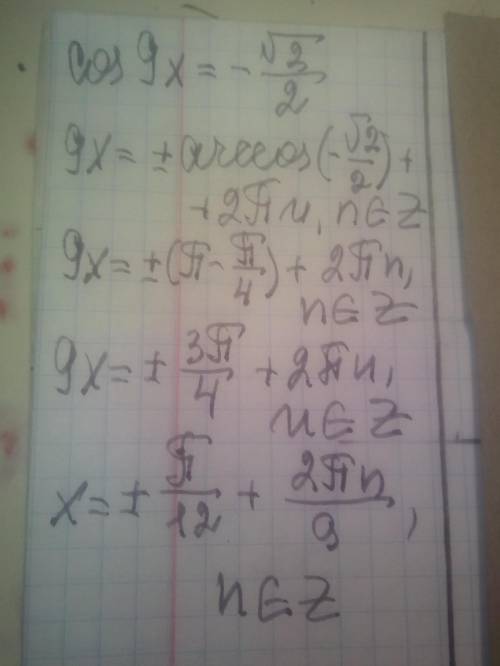 cos 9x = - √2/2
9x = ± arccos(- √2/2) +
+ 2πn, n ∈ Z
9x = ± (π - π/4) + 2πn,
n ∈ Z
9x = ± 3π/4 + 2πn,
n ∈ Z
x = ± π/12 + 2πn/9,
n ∈ Z